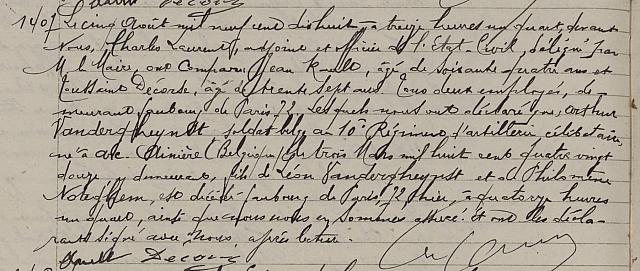 1409 Le cinq Août mil neuf cent dix huit, à treize heures un quart, devant
Nous, Charles Laurent, adjoint et officier de l'Etat-Civil, délégué par
M. le Maire, ont comparu Jean Rault, âgé de soixante quatre ans et
Toussaint Décorse, âgé de trente sept ans. Tous deux employés, de-
meurant faubourg de Paris 72, lesquels nous ont déclaré que, Arthur
Vandergheynst soldat belge au 10e Régiment d'artillerie, célibataire,
né à (Belgique) le trois Mars mil huit cent quatre vingt
douze, y demeurant, fils de Léon Vandergheynst et de Philomène
est décédé faubourg de Paris, 72 hier, à quatorze heures
un quart, ainsi que nous nous en sommes assuré. Et ont les décla-
rants signé avec Nous, après lecture.
Rault Decorse